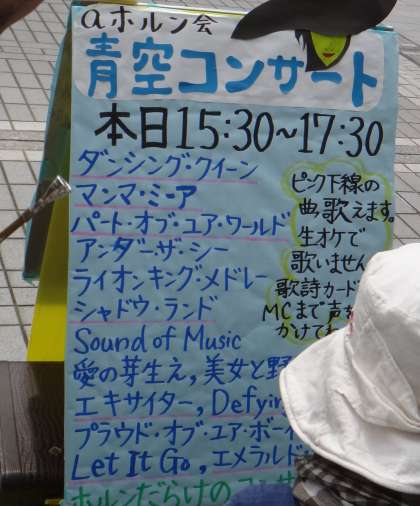 aホルン会
青空コンサート
本日15:30~17:30
ダンシング・クイーン
マンマ・ミーア
パート・オブ・ユア・ワールド
アンダー・ザ・シー
ライオンキング・メドレー
シャドウ・ランド
Sound of Music
愛の芽生え,美女と野
エキサイター, Defying
プラウド・オブ・ユア・ボーイ
Let It Go, エメラルド
ホルンだらけのコンサ
ピンク下線の
曲歌えます。
生オケで
歌いません
歌詩カード
MCまで声を
かけてね